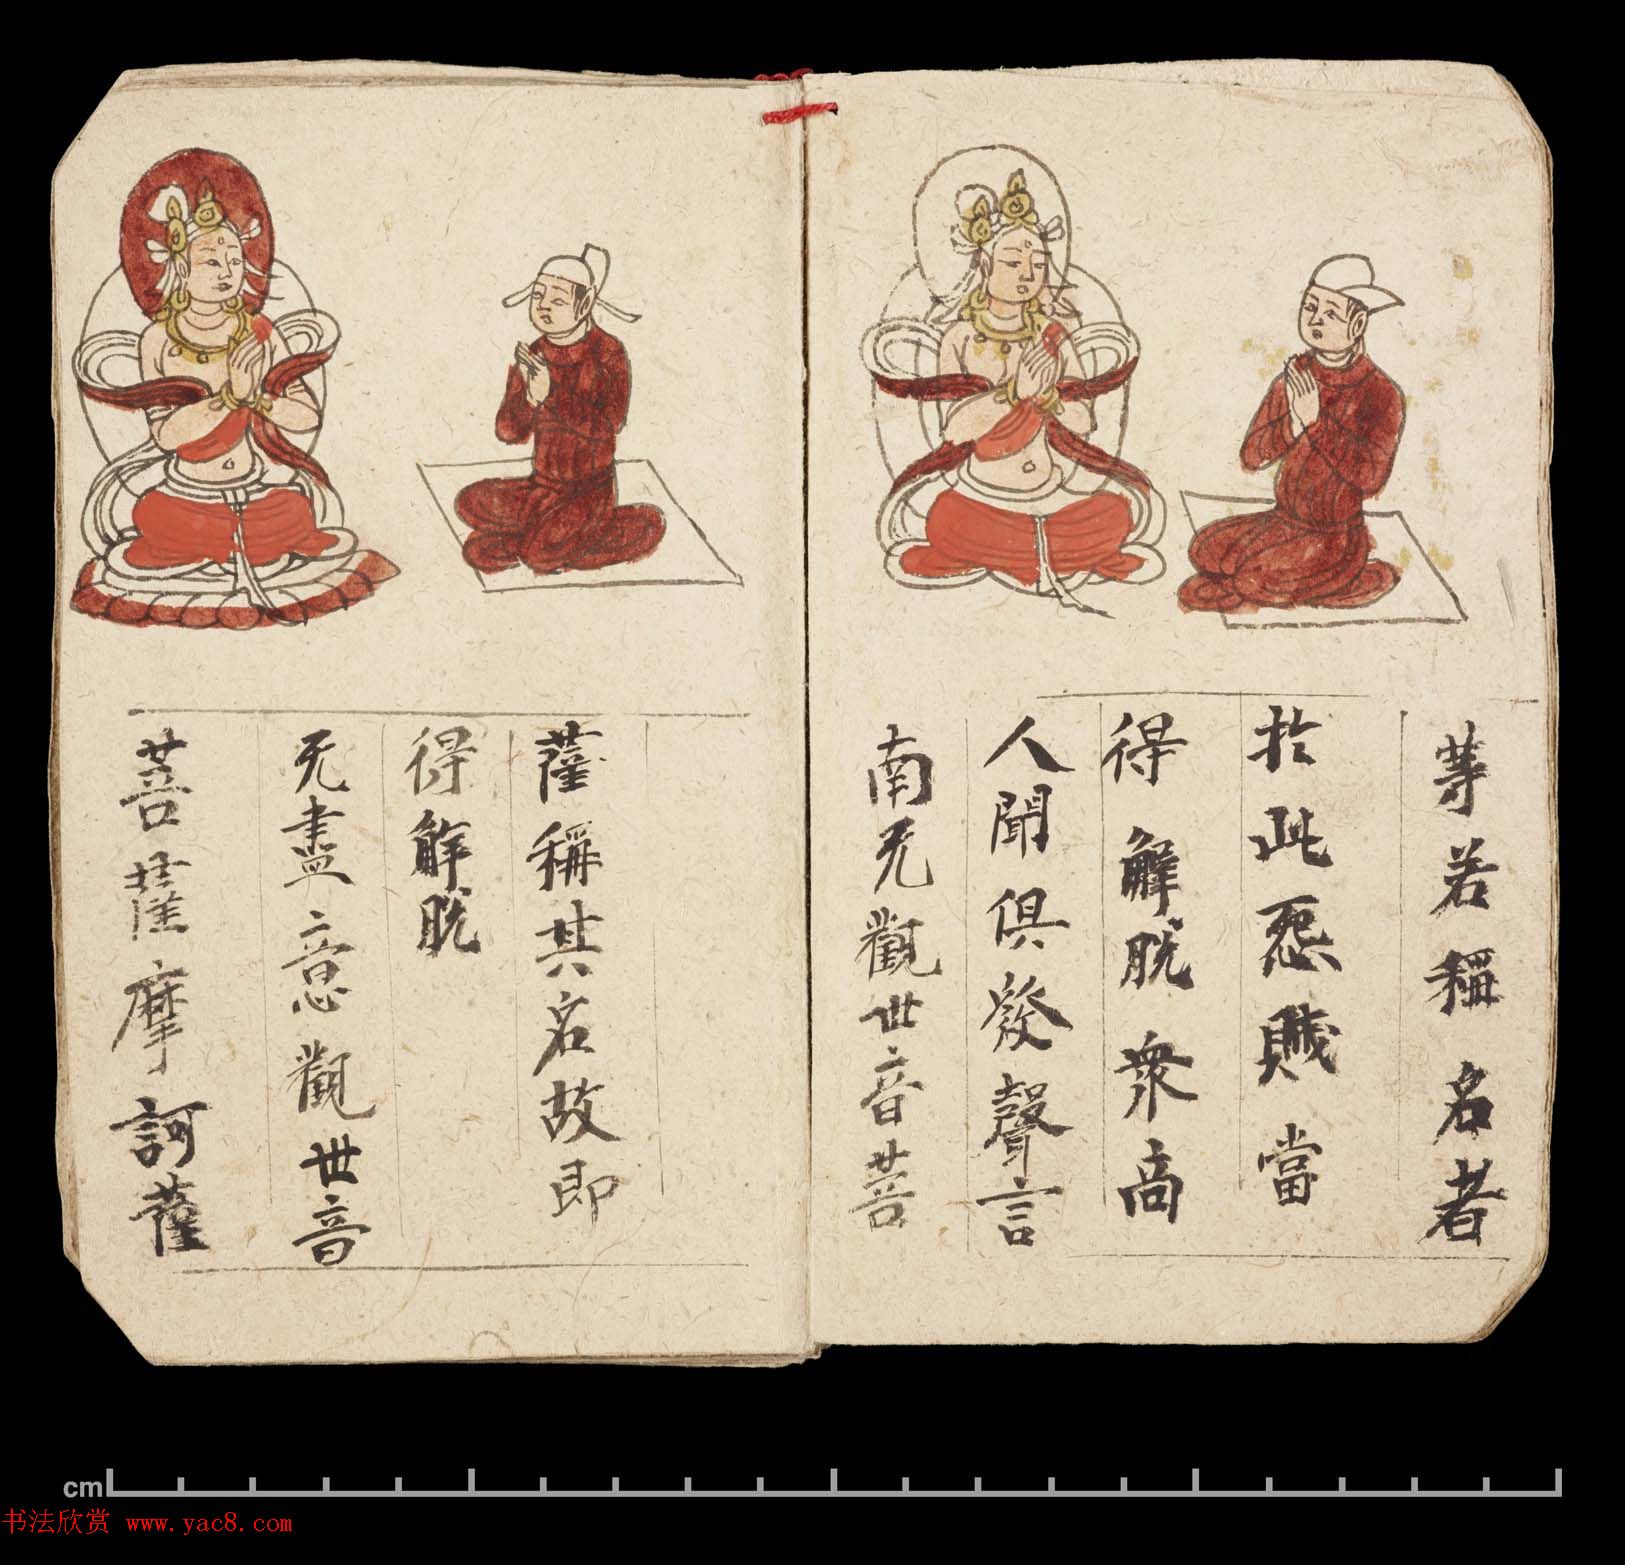 等若稱名者
扵此怨賊當
得解脫衆商
人聞俱發聲言
南无觀世音菩
薩稱其名故即
得解脫
无盡意觀世音
菩薩摩訶薩
cm
书法欣赏 www.yac8.com